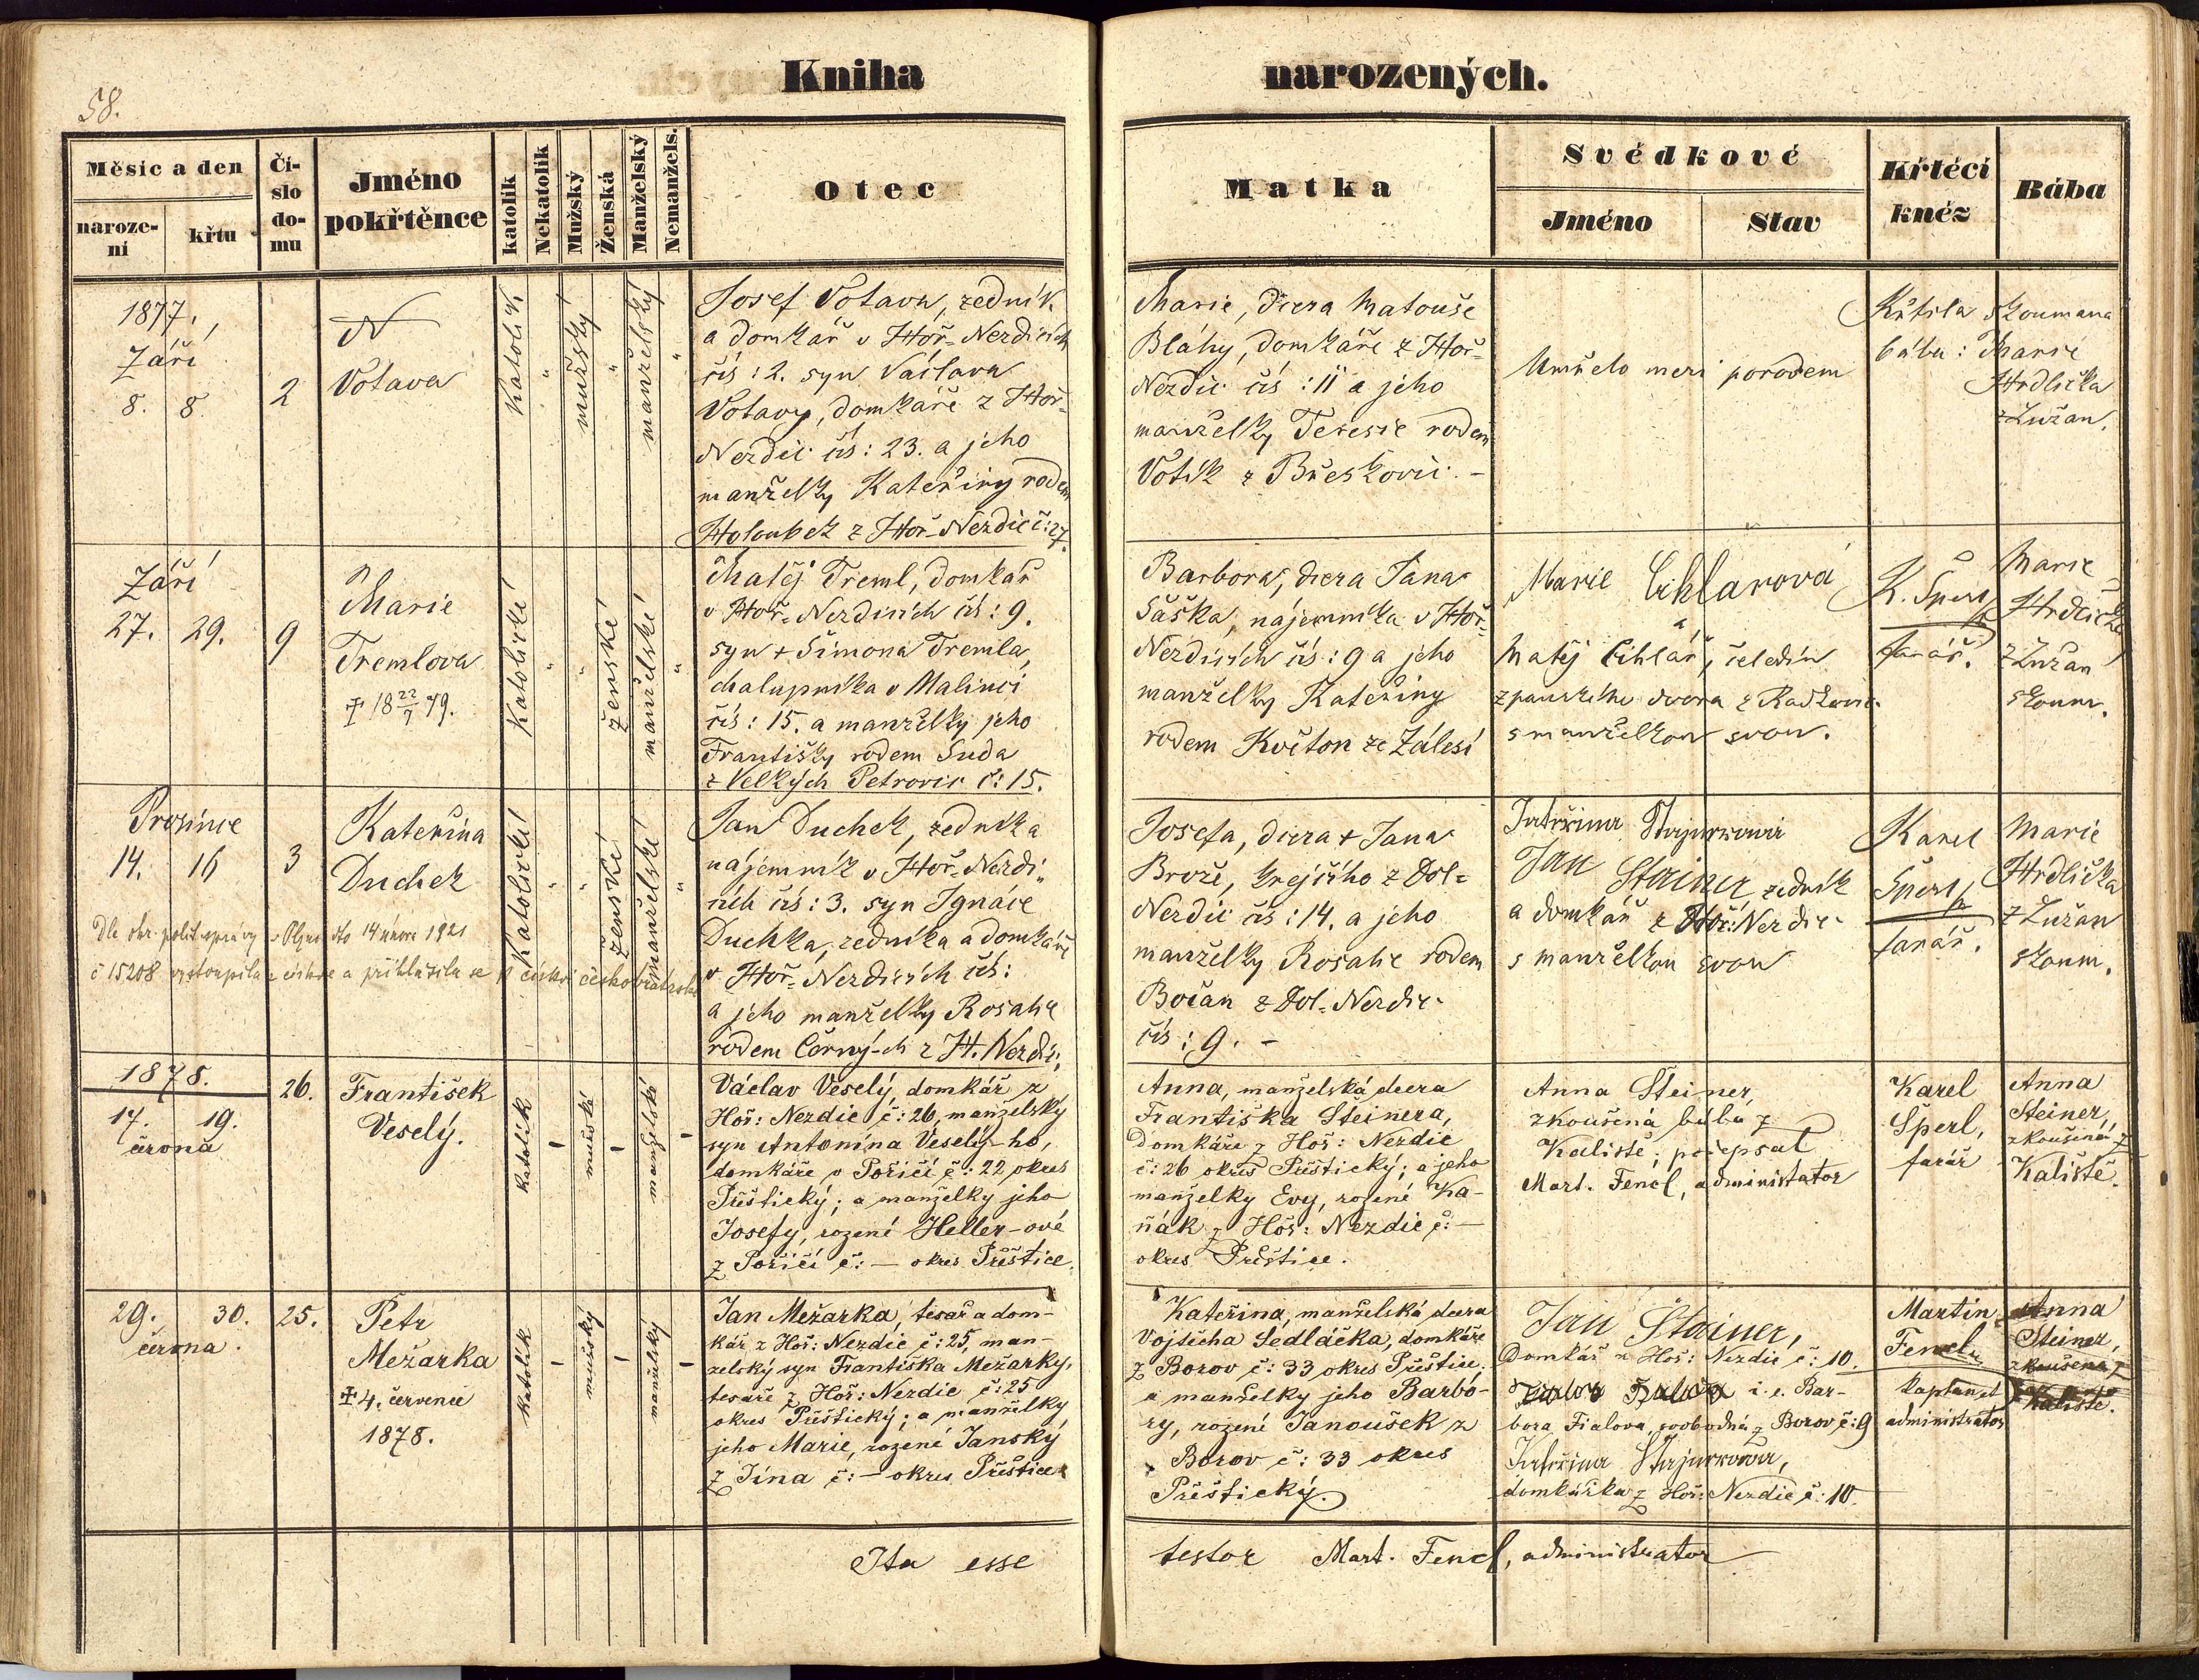 58.
Kniha narozených.
Měsíc a den
naroze-
ní
křtu
Čí-
slo
do-
mu
Jméno
pokřtěnce
katolík
Nekatolík
Mužský
Ženská
Manželský
Nemanžels.
Otec
Matka
Svědkové
Jméno
Stav
Křtěcí
kněz
Bába
1877.
Září
8. 8.
2
N
Votava
Katolík
"
mužský
"
manželský
"
Josef Votava, zedník
a domkář v Hoř-Nezdicích
čís: 2. syn Václava
Votavy, domkáře z Hoř-
Nezdic čís: 23. a jeho
manželky Kateřiny rodem
Holoubek z Hoř-Nezdic č: 27.
Marie, dcera Matouše
Bláhy, domkáře z Hoř-
Nezdic čís: 11 a jeho
manželky Terezie rodem
Votík z Břeskovic. –
Umřelo mezi porodem
Křtila
bába:
zkoumaná
Marie
Hrdlička
z Lužan.
Září
27. 29.
9
Marie
Tremlova
† 18 22/7 79.
Katolické
"
"
ženské
manželské
"
Matěj Treml, domkář
v Hoř-Nezdicích čís: 9.
syn + Šimona Tremla,
chalupníka v Malinci
čís: 15. a manželky jeho
Františky rodem Suda
z Velkých Petrovic č: 15.
Barbora, dcera Jana
Šáška, nájemníka v Hoř-
Nezdicích čís: 9 a jeho
manželky Kateřiny
rodem Květon ze Zálesí
Marie Cihlarová
a
Matěj Cihlář, čeledín
z panského dvora z Radkovic
s manželkou svou.
K. Šperl
farář.
Marie
Hrdlička
z Lužan
zkoum.
Prosince
14. 16
3
Kateřina
Duchek
Katolické
"
"
ženské
manželské
"
Dle okr. polit. správy v Plzni dto 14 února 1921
č 15208 vystoupila z církve a přihlásila se k církvi českobratrské
Jan Duchek, zedník a
nájemník v Hoř-Nezdi-
cích čís: 3. syn Ignáce
Duchka, zedníka a domkáře
v Hoř-Nezdicích čís:
a jeho manželky Rosalie
rodem Černý-ch z H. Nezdic.
Josefa, dcera + Jana
Brože, krejčího z Dol-
Nezdic čís: 14. a jeho
manželky Rosalie rodem
Bočan z Dol-Nezdic
čís: 9. –
Jan Steiner zedník
a domkář z Hoř: Nezdic
s manželkou svou
Karel
Šperl
farář.
Marie
Hrdlička
z Lužan
zkoum.
1878.
17. 19.
června
26.
František
Veselý.
katolík
–
mužské
–
manželské
–
Václav Veselý, domkář z
Hoř: Nezdic č: 26, manželský
syn Antonína Veselý-ho,
domkáře v Poříčí č: 22 okres
Přeštický; a manželky jeho
Josefy, rozené Heller-ové
z Poříčí č: — okres Přeštice.
Anna, manželská dcera
Františka Steinera,
domkáře z Hoř: Nezdic
č: 26 okres Přeštický; a jeho
manželky Evy, rozené Ka-
ňák z Hoř: Nezdic č: —
okres Přeštice.
Anna Steiner,
zkoušená bába z
Kaliště; podepsal
Mart. Fencl, administrator
Karel
Šperl,
farář
Anna
Steiner,
zkoušená z
Kaliště.
29. 30.
června.
25.
Petr
Mežarka
† 4. července
1878.
katolík
–
mužský
–
manželský
–
Jan Mežarka, tesař a dom-
kář z Hoř: Nezdic č: 25, man-
želský syn Františka Mežarky,
tesaře z Hoř: Nezdic č: 25
okres Přeštický; a manželky
jeho Marie, rozené Janský
z Jína č: — okres Přeštice
Kateřina, manželská dcera
Vojtěcha Sedláčka, domkáře
z Borov č: 33 okres Přeštice.
a manželky jeho Barbo-
ry, rozené Janoušek z
Borov č: 33 okres
Přeštický.
Jan Steiner,
Domkář z Hoř: Nezdic č: 10.
i. e. Bar-
bora Fialova, svobodná z Borov č: 9
domkářka z Hoř: Nezdic č: 10.
Martin
Fencl,
kaplan et
administrator
Anna
Steiner,
zkoušená z
Kaliště.
Ita esse testor Mart. Fencl, administrator